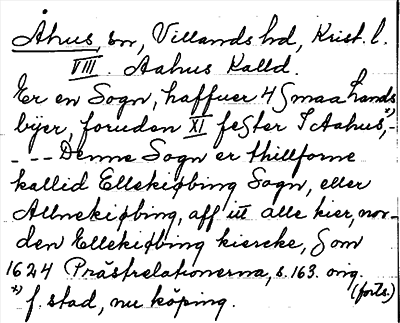 Åhus, sn, Villands hd, Krist. l.
VIII. Aahus Kalld.
Er en Sogn, haffuer 4 smaa Lands
byer, foruden XI fester I Aahus,*) -
- -- Denne Sogn er thillforne
kallid Ellekiøbing Sogn, eller
Allnekiøbing, aff iii alle hier, nor-
den Ellekiøbing kiercke, som
1624 Prästrelationerna, s. 163. orig.
*) f. stad, nu köping. (forts.)